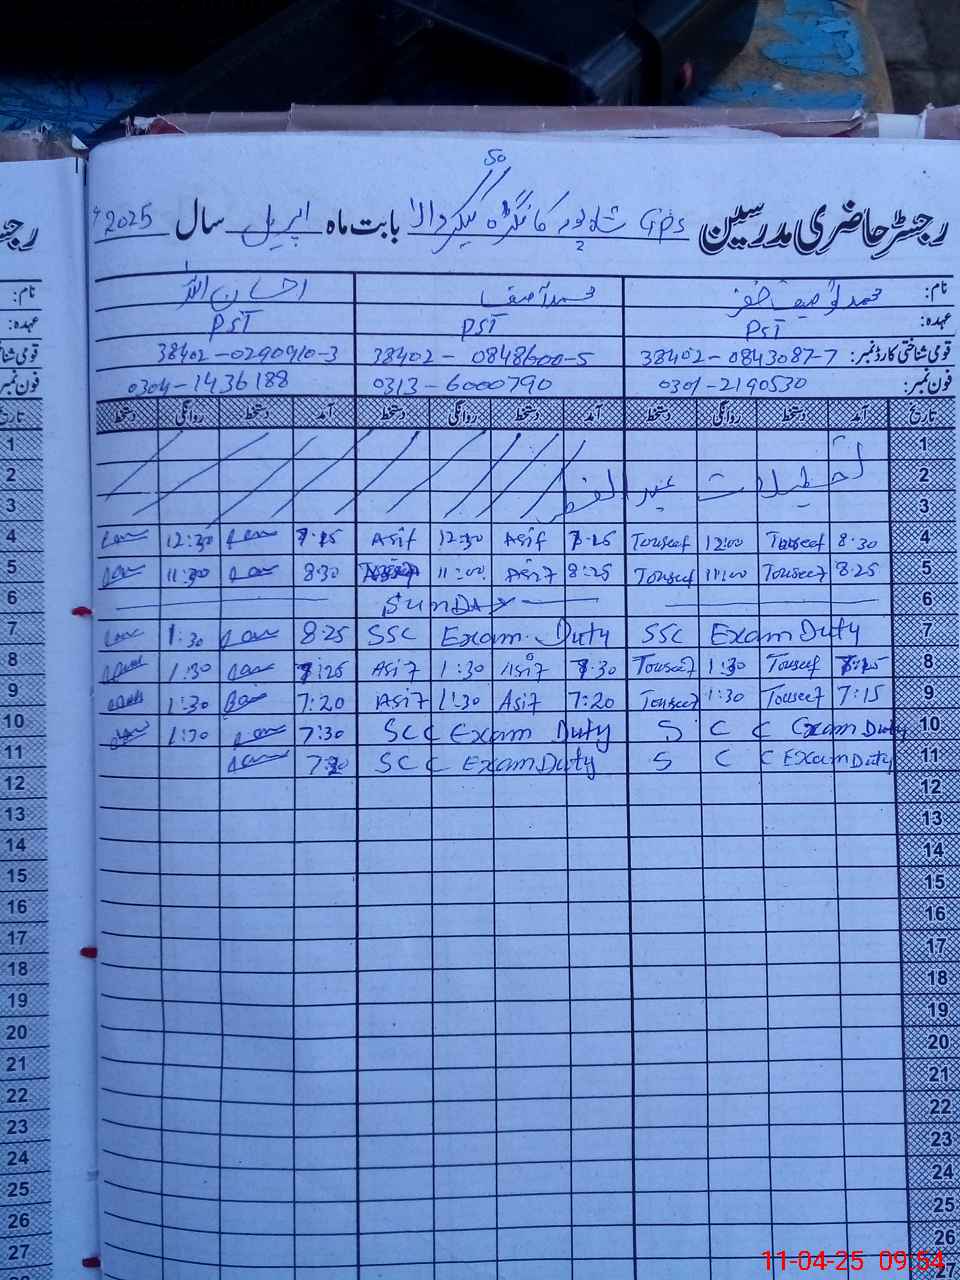 50
رجسٹر حاضری مدرسین GPS شاہ پور کانگڑہ بابت ماہ اپریل سال 2025ء
نام: محمد توصیف محمد آصف احسان اللہ
عہدہ: PST PST PST
قومی شناختی کارڈ نمبر: 38402-0843087-7 38402-0848600-5 38402-0290910-3
فون نمبر: 0301-2190530 0313-6000790 0304-1436188
تاریخ آمد دستخط روانگی دستخط آمد دستخط روانگی دستخط آمد دستخط روانگی دستخط
1
2 تعطیلات عید الفطر
3
4 8:30 Touseef 12:00 Touseef 7:15 Asif 12:30 Asif 7:15 12:30
5 8:25 Touseef 11:00 Touseef 8:25 Asif 11:00 8:30 11:30
6 SUNDAY
7 SSC Exam Duty SSC Exam Duty 8:25 1:30
8 7:15 Touseef 1:30 Touseef 7:30 Asif 1:30 Asif 7:25 1:30
9 7:15 Touseef 1:30 Touseef 7:20 Asif 1:30 Asif 7:20 1:30
10 S C C Exam Duty SCC Exam Duty 7:30 1:30
11 S C C Exam Duty SCC Exam Duty
12
13
14
15
16
17
18
19
20
21
22
23
24
25
26
27
11-04-25 09:54